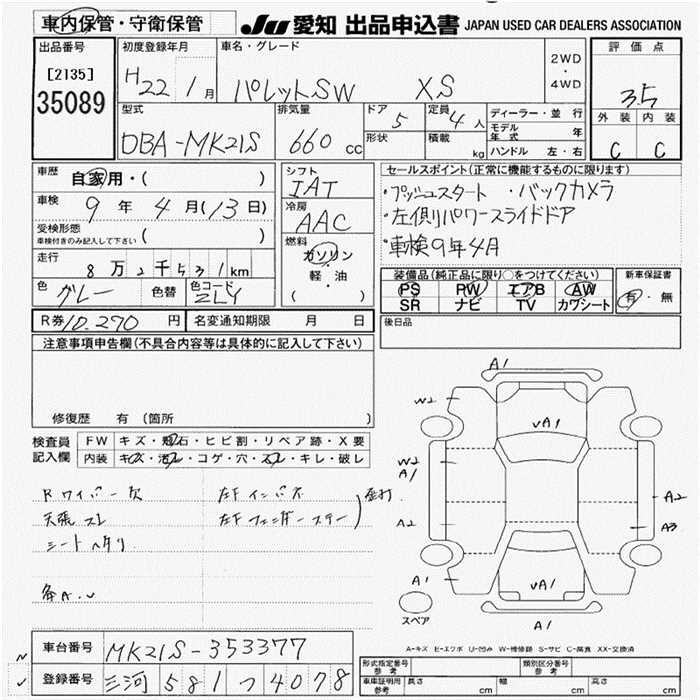 車内保管・守衛保管
JU 愛知 出品申込書 JAPAN USED CAR DEALERS ASSOCIATION
出品番号
[2135]
35089
初度登録年月
H 22 1 月
車名・グレード
パレットSW XS
2WD
・
4WD
評価点
3.5
外装 内装
C C
型式
DBA-MK21S
排気量
660 cc
ドア 5
形状
定員 4 人
積載 kg
ディーラー・並行
モデル年式 年
ハンドル 左・右
車歴
自家用・( )
車検
9 年 4 月 (13 日)
受検形態
車検付きのみ記入して下さい ( )
走行
8 万 2 千 5 3 1 km
色 グレー 色替 色コード ZLY
シフト
IAT
冷房
AAC
燃料
ガソリン
・
軽・油
( )
セールスポイント(正常に機能するものに限ります)
・プッシュスタート ・バックカメラ
・左側パワースライドドア
・車検9年4月
装備品(純正品に限り○をつけてください)
PS PW エアB AW
SR ナビ TV カワシート
新車保証書
有・無
R券 10.270 円 名変通知期限 月 日
後日品
注意事項申告欄(不具合内容等は具体的に記入して下さい)
修復歴 有 (箇所 )
検査員記入欄
FW キズ・飛石・ヒビ割・リペア跡・X要
内装 キズ・汚レ・コゲ・穴・スレ・キレ・破レ
Rワイパー欠 左Fインパネ
天張スレ 左Fフェンダーステー
シートヘタリ
A1
W2
vA1
W2
A1
A2
A2
A3
A1
vA1
A1
スペア
A-キズ E-エクボ U-凹み W-補修跡 S-サビ C-腐食 XX-交換済
車台番号 MK21S-353377
登録番号 三河 581 つ 4078
形式指定番号 参考
類別区分番号 参考
車車証明用 参考 長さ cm 幅 cm 高さ cm